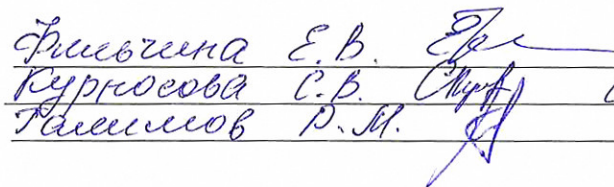 Фильчина Е.В.
Курносова С.В.
Галимов Р.М.